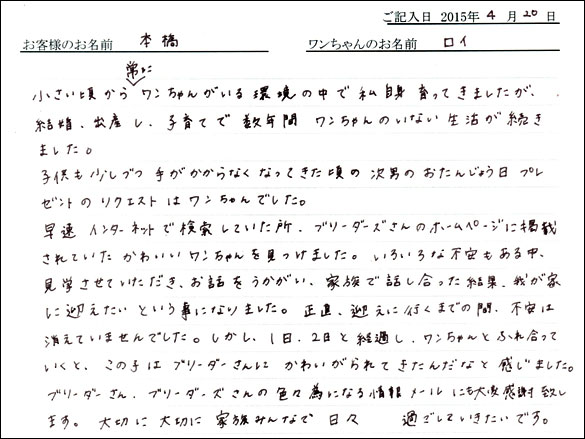 ご記入日 2015年 4月 20日
お客様のお名前 本橋 ワンちゃんのお名前 ロイ
常に
小さい頃からワンちゃんがいる環境の中で私自身育ってきましたが、
結婚、出産し、子育てで数年間ワンちゃんのいない生活が続き
ました。
子供も少しづつ手がかからなくなってきた頃の次男のおたんじょう日プレ
ゼントのリクエストはワンちゃんでした。
早速インターネットで検索していた所、ブリーダーズさんのホームページに掲載
されていたかわいいワンちゃんを見つけました。いろいろな不安もある中、
見学させていただき、お話をうかがい、家族で話し合った結果、我が家
に迎えたいという事になりました。正直、迎えに行くまでの間、不安は
消えていませんでした。しかし、1日、2日と経過し、ワンちゃんとふれ合って
いくと、この子はブリーダーさんにかわいがられてきたんだなと感じました。
ブリーダーさん、ブリーダーズさんの色々為になる情報メールにも大変感謝致し
ます。大切に大切に家族みんなで日々 過ごしていきたいです。